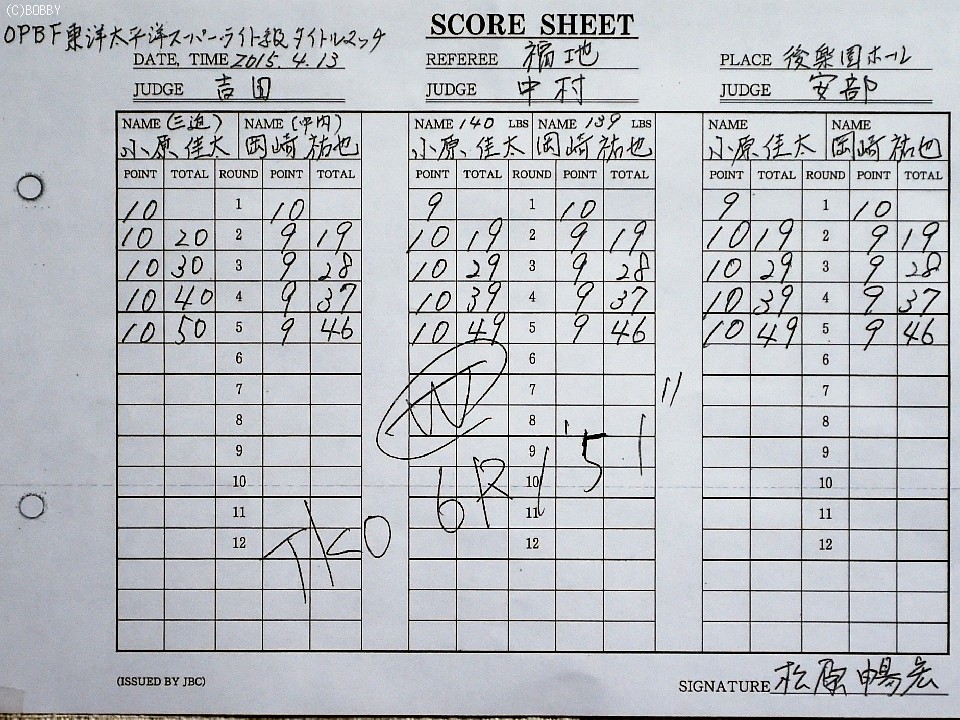 (C)BOBBY
SCORE SHEET
OPBF東洋太平洋スーパーライト級タイトルマッチ
DATE, TIME 2015.4.13 REFEREE 福地 PLACE 後楽園ホール
JUDGE 吉田 JUDGE 中村 JUDGE 安部
NAME (三迫) NAME (中内) NAME 140 LBS NAME 139 LBS NAME NAME
小原佳太 岡崎祐也 小原佳太 岡崎祐也 小原佳太 岡崎祐也
POINT TOTAL ROUND POINT TOTAL POINT TOTAL ROUND POINT TOTAL POINT TOTAL ROUND POINT TOTAL
10 1 10 9 1 10 9 1 10
10 20 2 9 19 10 19 2 9 19 10 19 2 9 19
10 30 3 9 28 10 29 3 9 28 10 29 3 9 28
10 40 4 9 37 10 39 4 9 37 10 39 4 9 37
10 50 5 9 46 10 49 5 9 46 10 49 5 9 46
6 6 6
7 7 7
8 8 8
9 9 9
10 10 10
11 11 11
12 12 12
TKO 6R 1'51"
(ISSUED BY JBC)
SIGNATURE 松原暢宏